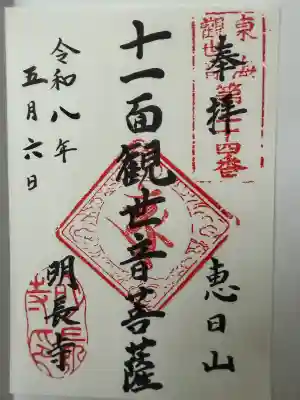 東海
観世音
奉拝
恵日山
十一面観世音菩薩
令和八年
五月六日
明長寺